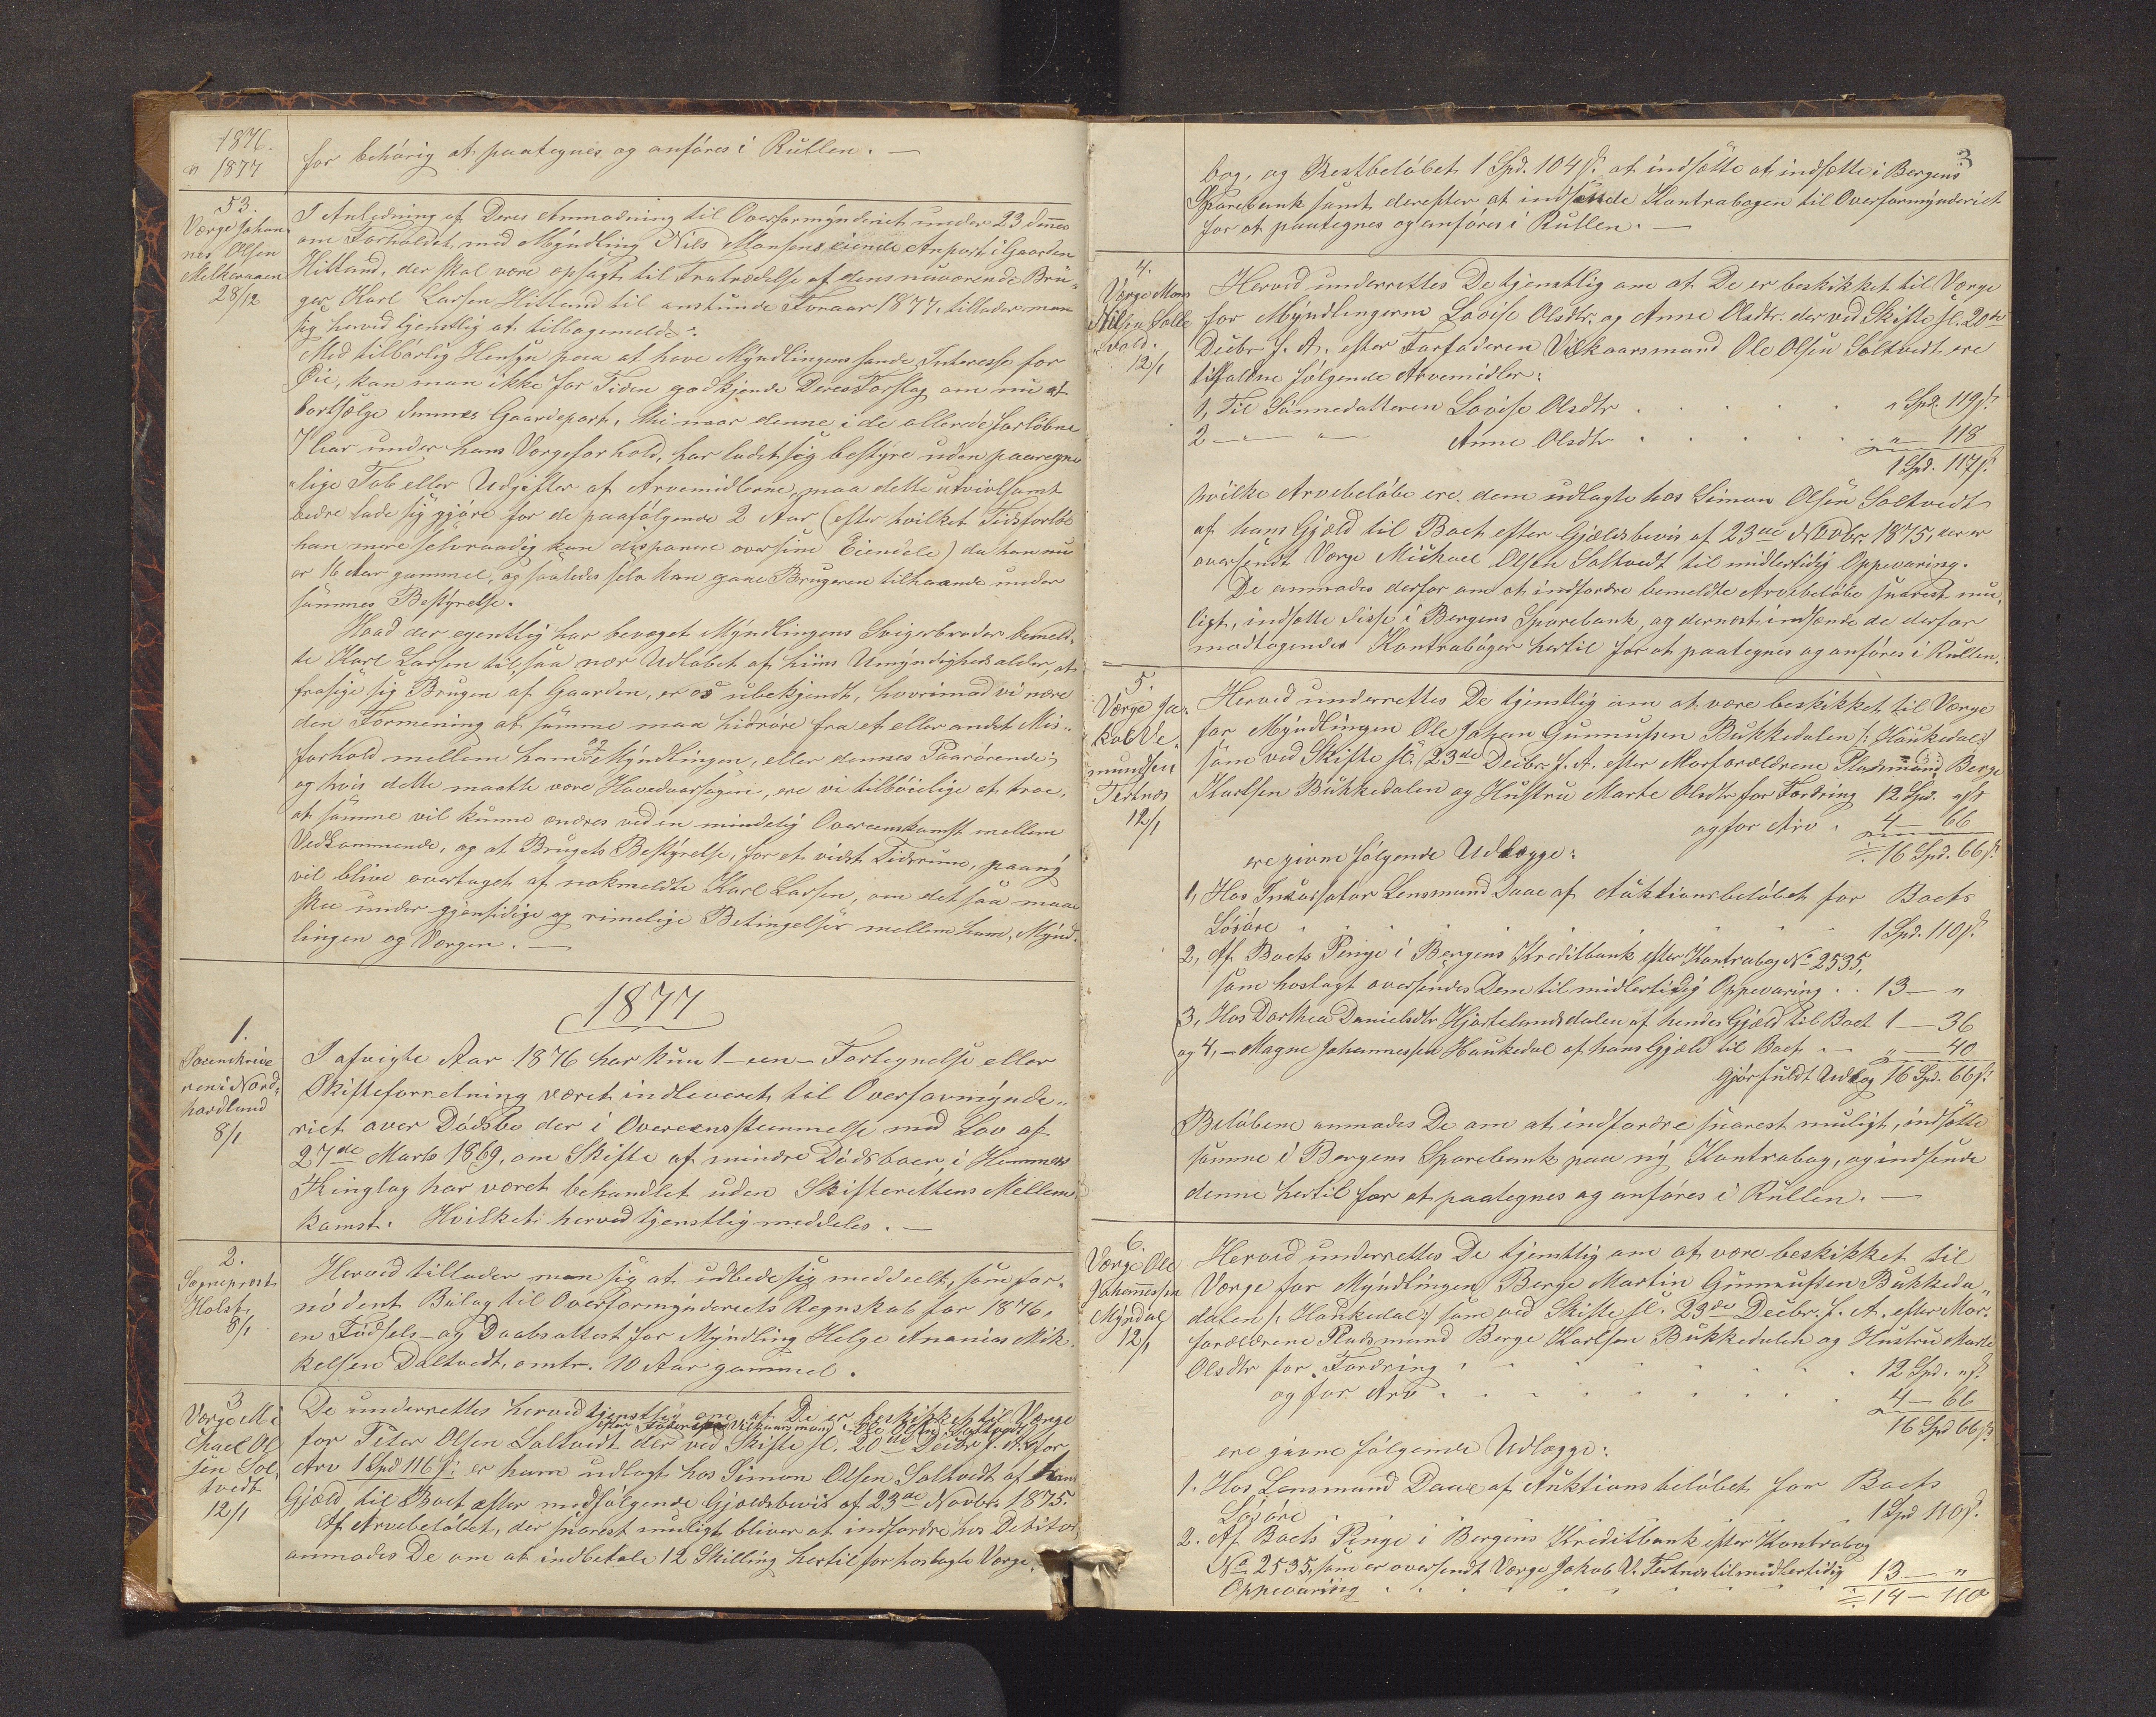 1876.
" 1877
for behørig at paategnes og anføres i Rullen. —
53.
Værge Johan
nes Olsen
Melkeraaen
28/12
I Anledning af Deres Anmodning til Overformynderiet under 23 dennes
om Forholdet med Myndling Nils Monsens eiende Anpart i Gaarden
Hitland, der skal være opsagt til Fratrædelse af dens nuværende Bru-
ger Karl Larsen Hitland til anstunde Foraar 1877, tillader man
sig herved tjenstlig at tilbagemelde:
Med tilbørlig Hensyn paa at have Myndlingens sande Interesse for
Øie, kan man ikke for Tiden godkjende Deres Forslag om nu at
bortsælge dennes Gaardepart, thi naar denne i de allerede forløbne
7 Aar under hans Værgeforhold, har ladet sig bestyre uden paaregne
"lige Tab eller Udgifter af Arvemidlerne, maa dette utvivlsomt
bedre lade sig gjøre for de paafølgende 2 Aar (efter hvilket Tidsforløb
han mere selvraadig kan disponere over sine Eiendele) da han nu
er 16 Aar gammel, og saaledes selv kan gaae Brugeren tilhaande under
sammes Bestyrelse.
Hvad der egentlig har bevæget Myndlingens Svigerbroder bemeld-
te Karl Larsen til, saa nær Udløbet af hiins Umyndighedsalder, at
frasige sig Brugen af Gaarden, er os ubekjendt, hvorimod vi nære
den Formening at samme maa hidrøre fra et eller andet Mis-
forhold mellem ham og Myndlingen, eller dennes Paarørende;
og hvis dette maatte være Hovedaarsagen, ere vi tilbøielige at troe,
at samme vil kunne ændres ved en mindelig Overeenskomst mellem
Vedkommende, og at Brugets Bestyrelse, for et vidst Tidsrum, paany
vil blive overtaget af nokmeldte Karl Larsen, om det saa maa
skee under gjensidige og rimelige Betingelser mellem ham, Mynd-
lingen og Værgen. —
1877
1.
Sorenskrive
ren i Nord-
hordland
8/1
I afvigte Aar 1876 har kun 1 – een – Fortegnelse eller
Skifteforretning været indleveret til Overformynde-
riet over Dødsbo der i Overeensstemmelse med Lov af
27de Marts 1869, om Skifte af mindre Dødsboer, i Hammers
Thinglag har været behandlet uden Skifterettens Mellem-
komst. Hvilket herved tjenstlig meddeles. —
2.
Sogneprest
Holst
8/1
Herved tillader man sig at udbede sig meddeelt, som for-
nødent Bilag til Overformynderiets Regnskab for 1876,
en Fødsels- og Daabsattest for Myndling Helge Ananias Mik-
kelsen Daltvedt, omtr. 10 Aar gammel.
3
Værge Mi
chael Ol
sen Sol
tvedt
12/1
De underrettes herved tjenstlig om at De er beskikket til Værge
efter Faderen Vilkaarsmand Ole Olsen Soltvedt
for Peter Olsen Soltvedt der ved Skifte sl. 20de Decbr. f. A. for
Arv 1 Spd 116 s. er ham udlagt hos Simon Olsen Soltvedt af hans
Gjæld til Boet efter medfølgende Gjældsbevis af 23de Novbr 1875.
Af Arvebeløbet, der snarest muligt bliver at indfordre hos Debitor,
anmodes De om at indbetale 12 Skilling hertil for hoslagte Værge-
3
bog, og Restbeløbet 1 Spd. 104 s. at indsætte at indsætte i Bergens
Sparebank samt derefter at indsende Kontrabogen til Overformynderiet
for at paategnes og anføres i Rullen. —
4.
Værge Mons
Nilsen Solt
vedt.
12/1
Herved underrettes De tjenstlig om at De er beskikket til Værge
for Myndlingerne Lovise Olsdtr. og Anne Olsdtr. der ved Skifte sl. 20de
Decbr f. A. efter Farfaderen Vilkaarsmand Ole Olsen Soltvedt ere
tilfaldne følgende Arvemidler:
1, Til Sønnedatteren Lovise Olsdtr . . . . . " Spd. 119 s.
2 — " — " — Anne Olsdtr . . . . . . . " — 118
1 Spd. 117 s.
hvilke Arvebeløbe ere dem udlagte hos Simon Olsen Soltvedt
af hans Gjæld til Boet efter Gjældsbevis af 23de Novbr. 1875, der er
oversendt Værge Michael Olsen Soltvedt til midlertidig Oppevaring.
De anmodes derfor om at indfordre bemeldte Arvebeløbe snarest mu-
ligt, indsætte disse i Bergens Sparebank, og dernæst indsende de derfor
modtagendes Kontrabøger hertil for at paategnes og anføres i Rullen.
5.
Værge Ja-
kob Ve-
mundsen
Tertnæs
12/1
Herved underrettes De tjenstlig om at være beskikket til Værge
for Myndlingen Ole Johan Gunnufsen Bukkedalen /: Haukedal :/
som ved Skifte sl. 23de Decbr. f. A. efter Morforældrene Pladsmand Berge
Karlsen Bukkedalen og Hustru Marte Olsdtr for Fordring 12 Spd. " s
og for Arv . 4 — 66
÷ 16 Spd. 66 s.
ere givne følgende Udlægge:
1, Hos Inkassator Lensmand Daae af Auktionsbeløbet for Boets
Løsøre . . . . . . . . 1 Spd. 110 s.
2, Af Boets Penge i Bergens Kreditbank efter Kontrabog No 2535,
som hoslagt oversendes Dem til midlertidig Oppevaring . . 13 — "
3, Hos Dorthea Danielsdtr Hjortelandsdalen af hendes Gjæld til Boet 1 — 36
og 4, — Magne Johannessen Haukedal af hans Gjæld til Boet — " — 40
Gjør fuldt Udlæg 16 Spd. 66 s.
Beløbene anmodes De om at indfordre snarest muligt, indsætte
samme i Bergens Sparebank paa ny Kontrabog, og indsende
denne hertil for at paategnes og anføres i Rullen. —
6.
Værge Ole
Johannessen
Myrdal
12/1
Herved underrettes De tjenstlig om at være beskikket til
Værge for Myndlingen Berge Martin Gunnufsen Bukkeda-
dalen /: Haukedal :/ som ved Skifte sl. 23de Decbr. f. A. efter Mor-
forældrene Pladsmand Berge Karlsen Bukkedalen og Hustru Marte
Olsdtr for Fordring . . . . . . . 12 Spd. " s.
og for Arv . . . . . . . . 4 — 66
16 Spd 66 s.
ere givne følgende Udlægge:
1. Hos Lensmand Daae af Auktionsbeløbet for Boets
Løsøre . . . . . . . 1 Spd 110 s.
2. Af Boets Penge i Bergens Kreditbank efter Kontrabog
No 2535, som er oversendt Værge Jakob V. Tertnæs til midlertidig
Oppevaring . . . . . . . . 13 — "
÷ 14 — 110